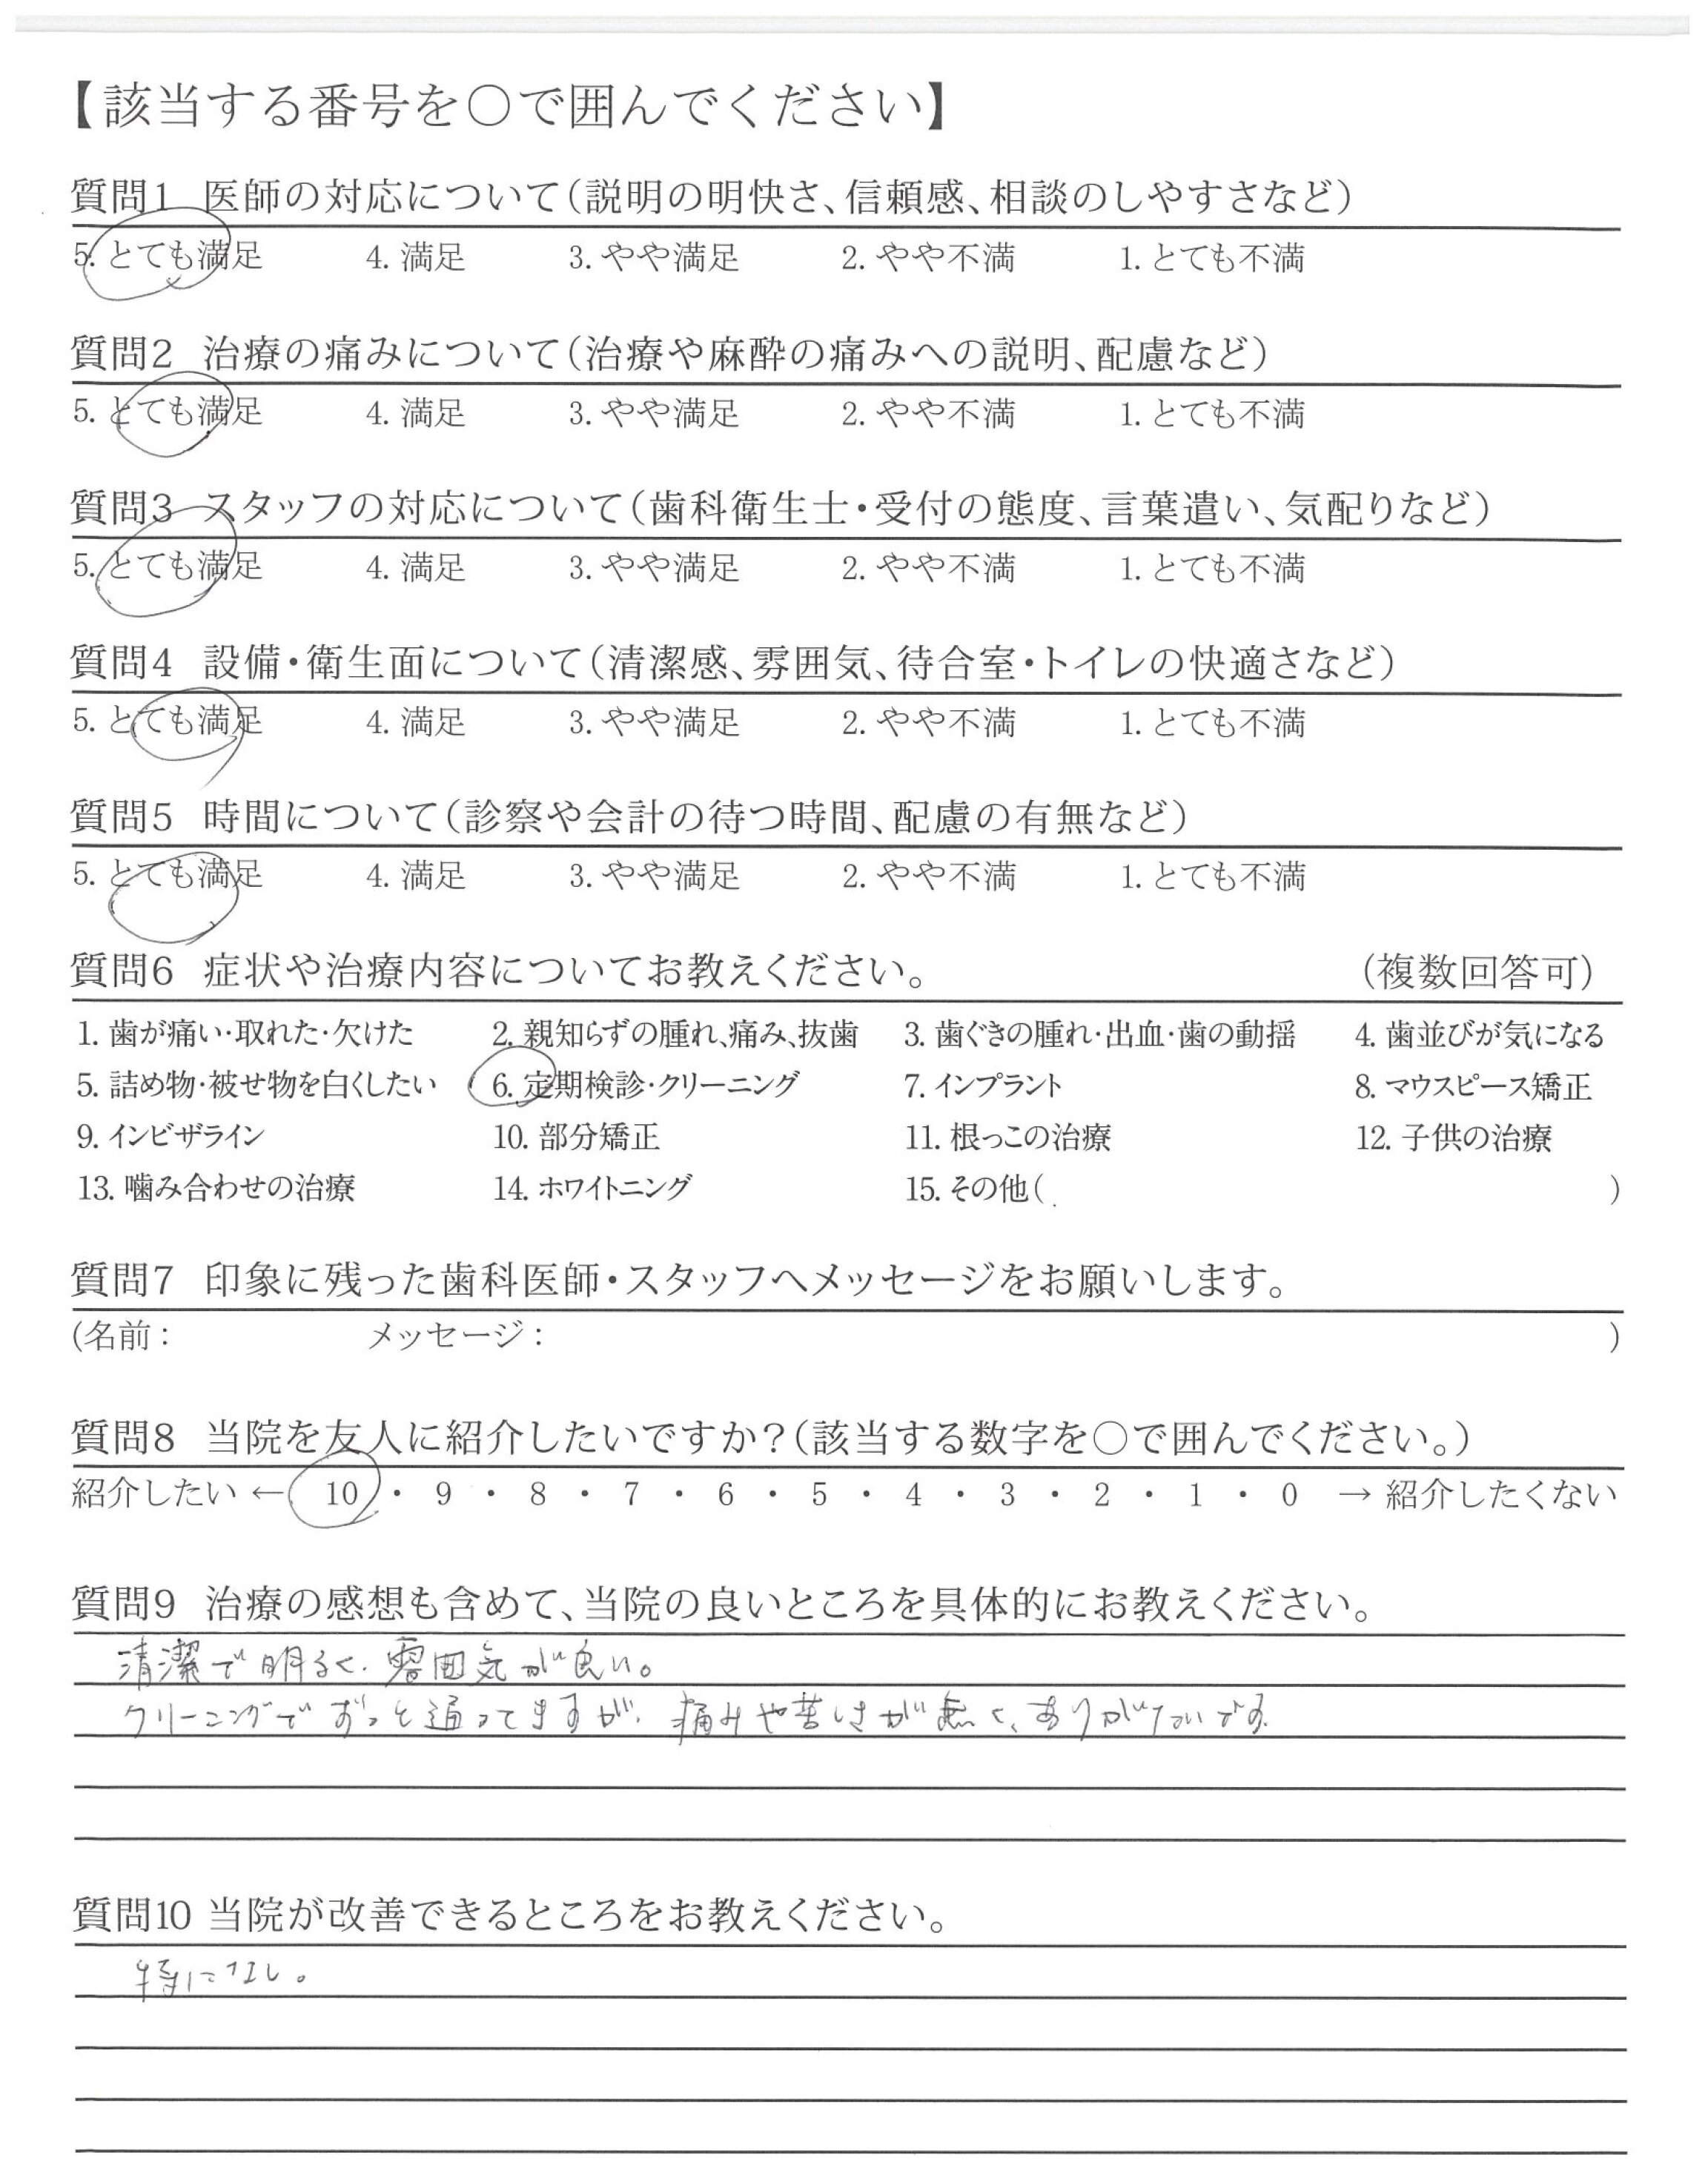 【該当する番号を○で囲んでください】
質問1 医師の対応について(説明の明快さ、信頼感、相談のしやすさなど)
5. とても満足 4. 満足 3. やや満足 2. やや不満 1. とても不満
質問2 治療の痛みについて(治療や麻酔の痛みへの説明、配慮など)
5. とても満足 4. 満足 3. やや満足 2. やや不満 1. とても不満
質問3 スタッフの対応について(歯科衛生士・受付の態度、言葉遣い、気配りなど)
5. とても満足 4. 満足 3. やや満足 2. やや不満 1. とても不満
質問4 設備・衛生面について(清潔感、雰囲気、待合室・トイレの快適さなど)
5. とても満足 4. 満足 3. やや満足 2. やや不満 1. とても不満
質問5 時間について(診察や会計の待つ時間、配慮の有無など)
5. とても満足 4. 満足 3. やや満足 2. やや不満 1. とても不満
質問6 症状や治療内容についてお教えください。 (複数回答可)
1. 歯が痛い・取れた・欠けた 2. 親知らずの腫れ、痛み、抜歯 3. 歯ぐきの腫れ・出血・歯の動揺 4. 歯並びが気になる
5. 詰め物・被せ物を白くしたい 6. 定期検診・クリーニング 7. インプラント 8. マウスピース矯正
9. インビザライン 10. 部分矯正 11. 根っこの治療 12. 子供の治療
13. 噛み合わせの治療 14. ホワイトニング 15. その他( )
質問7 印象に残った歯科医師・スタッフへメッセージをお願いします。
(名前: メッセージ: )
質問8 当院を友人に紹介したいですか?(該当する数字を○で囲んでください。)
紹介したい ← 10 ・ 9 ・ 8 ・ 7 ・ 6 ・ 5 ・ 4 ・ 3 ・ 2 ・ 1 ・ 0 → 紹介したくない
質問9 治療の感想も含めて、当院の良いところを具体的にお教えください。
清潔で明るく、雰囲気が良い。
クリーニングでずっと通ってますが、痛みや苦しさが無く、ありがたいです。
質問10 当院が改善できるところをお教えください。
特になし。